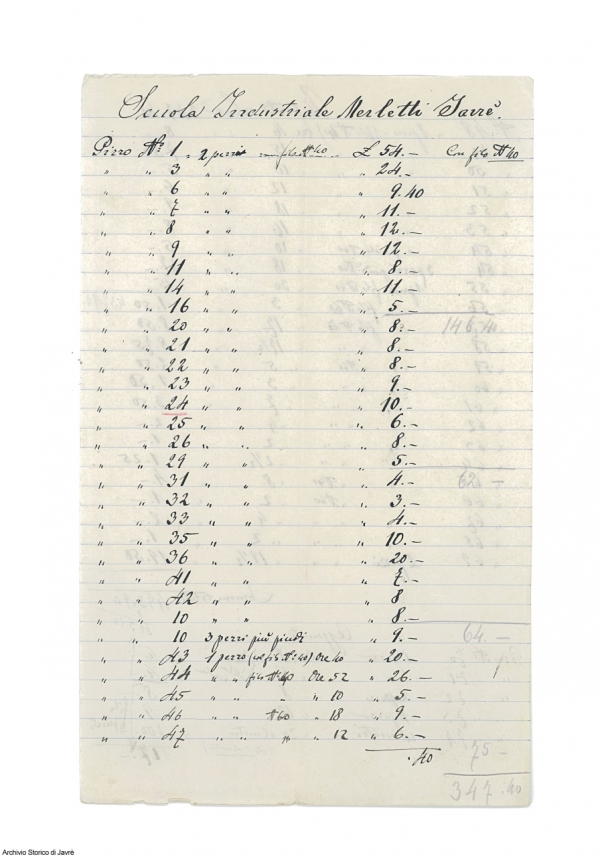 Scuola Industriale Merletti Javrè.
Pizzo Nº 1 " 2 pezzi con filo Nº 40 " £ 54.- Con filo Nº 40
" " 3 " " " 24.-
" " 6 " " " 9.40
" " 7 " " " 11.-
" " 8 " " " 12.-
" " 9 " " " 12.-
" " 11 " " " 8.-
" " 14 " " " 11.-
" " 16 " " " 5.-
" " 20 " " " 8.- 146,40
" " 21 " " " 8.-
" " 22 " " " 8.-
" " 23 " " " 9.-
" " 24 " " " 10.-
" " 25 " " " 6.-
" " 26 " " " 8.-
" " 29 " " " 5.-
" " 31 " " " 4.- 62 -
" " 32 " " " 3.-
" " 33 " " " 4.-
" " 35 " " " 10.-
" " 36 " " " 20.-
" " 41 " " " 7.-
" " 42 " " " 8
" " 10 " " " 8.-
" " 10 3 pezzi più " 9.- 64.-
" " 43 1 pezzo (col filo Nº 40) Ore 40 " 20.-
" " 44 " " filo Nº 40 Ore 52 " 26.-
" " 45 " " " 10 " 5.-
" " 46 " " Nº 60 " 18 " 9.-
" " 47 " " " " 12 " 6.-
.40 75 -
347.40
Archivio Storico di Javrè